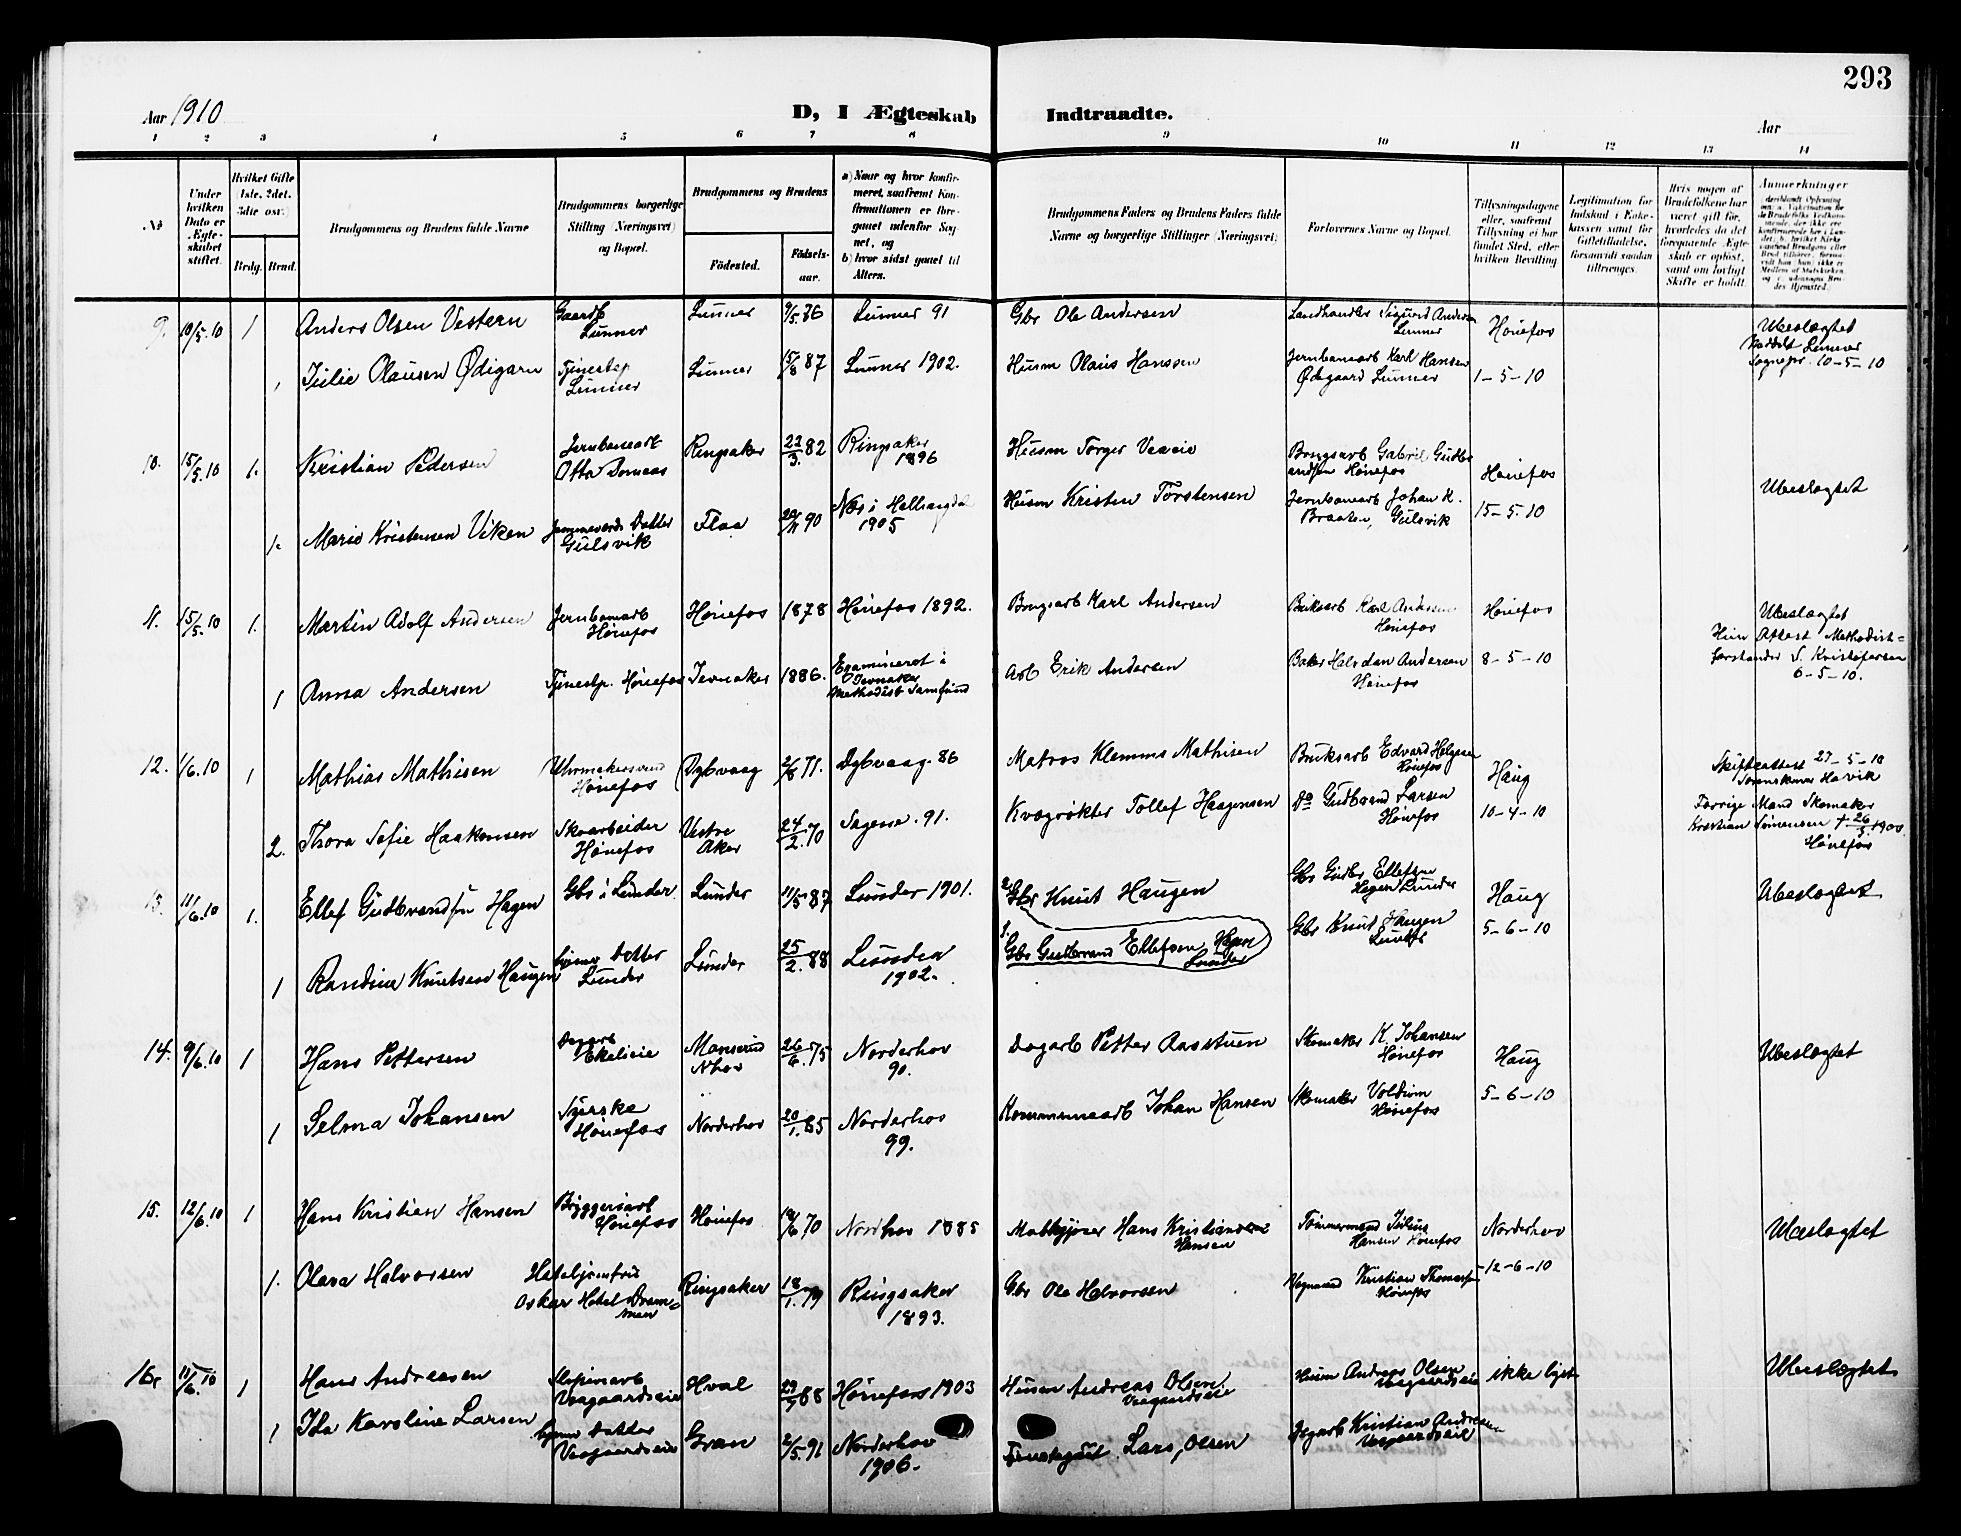 293
Aar 1910
D, I Ægteskab Indtraadte.
Aar
1 2 3 4 5 6 7 8 9 10 11 12 13 14
No
Under hvilken Dato er Ægteskabet stiftet.
Hvilket Gifte 1ste, 2det, 3die osv.
Brdg. Brud.
Brudgommens og Brudens fulde Navne
Brudgommens borgerlige Stilling (Næringsvei) og Bopæl.
Brudgommens og Brudens
Fødested.
Fødselsaar.
a) Naar og hvor konfirmeret, saafremt Konfirmationen er foregaaet udenfor Sognet, og
b) hvor sidst gaaet til Alters.
Brudgommens Faders og Brudens Faders fulde Navne og borgerlige Stillinger (Næringsvei)
Forlovernes Navne og Bopæl.
Tillysningsdagene eller, saafremt Tillysning ei har fundet Sted, efter hvilken Bevilling
Legitimation for Indskud i Enkekassen samt for Giftetilladelse, forsaavidt saadan tiltrænges.
Hvis nogen af Brudefolkene har været gift før, hvorledes da det foregaaende Ægteskab er opløst, samt om lovligt Skifte er holdt.
Anmerkninger
9. 10/5.10 1 Anders Olsen Vestern Gaardb Lunner Lunner 9/5 76 Lunner 91 Gbr Ole Andersen Landhandler Sigurd Andersen Lunner Hønefos Ubeslægtet
1 Julie Olausen Ødigarn Tjenestep Lunner Lunner 15/8 87 Lunner 1902. Husm Olaus Hanssen Jernbanearb Karl Hansen Ødegaard Lunner 1-5-10 Lunner Sognepr. 10-5-10
10. 15/5.10 1. Kristian Pedersen Jernbanearb Otta Domaas Ringsaker 22/3. 82 Ringsaker 1896 Husm Torger Veaeie Brugsarb Gabriel Gudbrandsen Hønefos Hønefos
1. Marie Kristensen Viken Hjemmevær. Datter Gulsvik Flaa 20/11 90 Næs i Hallingdal 1905 Husm Kristen Torstensen Jernbanearb Johan K. Braaten, Gulsvik 15-5.10 Ubeslægtet
11. 15/5.10 1. Martin Adolf Andersen Jernbanearb Hønefos Hønefos 1878 Hønefos 1892. Brugsarb Karl Andersen Bruksarb Karl Andersen Hønefos Hønefos Ubeslægtet
1 Anna Andersen Tjenestp. Hønefos Jevnaker 1886. Examineret i Jevnaker Methodist Samfund Arb Erik Andersen Baker Halvdan Andersen Hønefos 8-5-10 Hun Attest Methodistforstander S. Kristofersen 6-5-10.
12. 1/6.10 1 Mathias Mathisen Uhrmakersvend Hønefos Dybvaag 2/8 71. Dybvaag. 86 Matros Klemms Mathisen Bruksarb Edvard Helgesen Hønefos Haug Skifteattest 27-5-10
2. Thora Sofie Haakensen Skoarbeider Hønefos Vestre Aker 24/2. 70 Sagene. 91. Kvægrøkter Tollef Haagensen Do Gudbrand Larsen Hønefos 10-4-10 Forrige Mand Skomaker Kristian Sørensen † 26/3 1900 Hønefos
13. 11/6.10 1. Ellef Gudbrandsen Hagen Gbs i Lunder. Lunder 11/5 87 Lunder 1901. 2 Gbr Knut Haugen Gbr Gudbr Ellefsen Hagen Lunder Haug Ubeslægtet
1 Randine Knutsen Haugen hjemv Datter Lunder Lunder 25/2. 88 Lunder 1902. 1. Gbr Gudbrand Ellefsen Hagen Lunder Gbr Knut Haugen Lunder 5-6-10
14. 9/6.10 1 Hans Pettersen Dagarb Ekeleie Monserud Nhov 26/6 75 Norderhov 90. Dagarb Petter Aasstuen Skomaker K. Johansen Hønefos Haug Ubeslægtet
1 Selma Johansen Syerske Hønefos Norderhov 20/1. 85 Norderhov 99. Kommunearb Johan Hansen Skomaker Voldum Hønefos 5-6-10
15. 12/6.10 1 Hans Kristian Hansen Bryggeriarb Hønefos Hønefos 19/6 70 Nordhov 1885 Matkjører Hans Kristiansen Hansen Tømmermand Julius Hansen Hønefos Norderhov Ubeslægtet
1. Olava Halvorsen Hoteljomfru Oskar Hotel Drammen Ringsaker 18/1. 79 Ringsaker 1893. Gbr Ole Halvorsen Vognmand Kristian Thomasen Hønefos 12-6-10
16. 11/6.10 1 Hans Andreasen Sliperiarb Veagaardseie Hval 29/9 88 Hønefos 1903 Husm Andreas Olsen Veagaardseie Husm Andreas Olsen Veagaardseie ikke lyst Ubeslægtet
1 Ida Karoline Larsen hjemv Datter Veagaardseie Gran 2/5. 91 Norderhov 1906. Lars Olsen Dagarb Kristian Andresen Veagaardseie